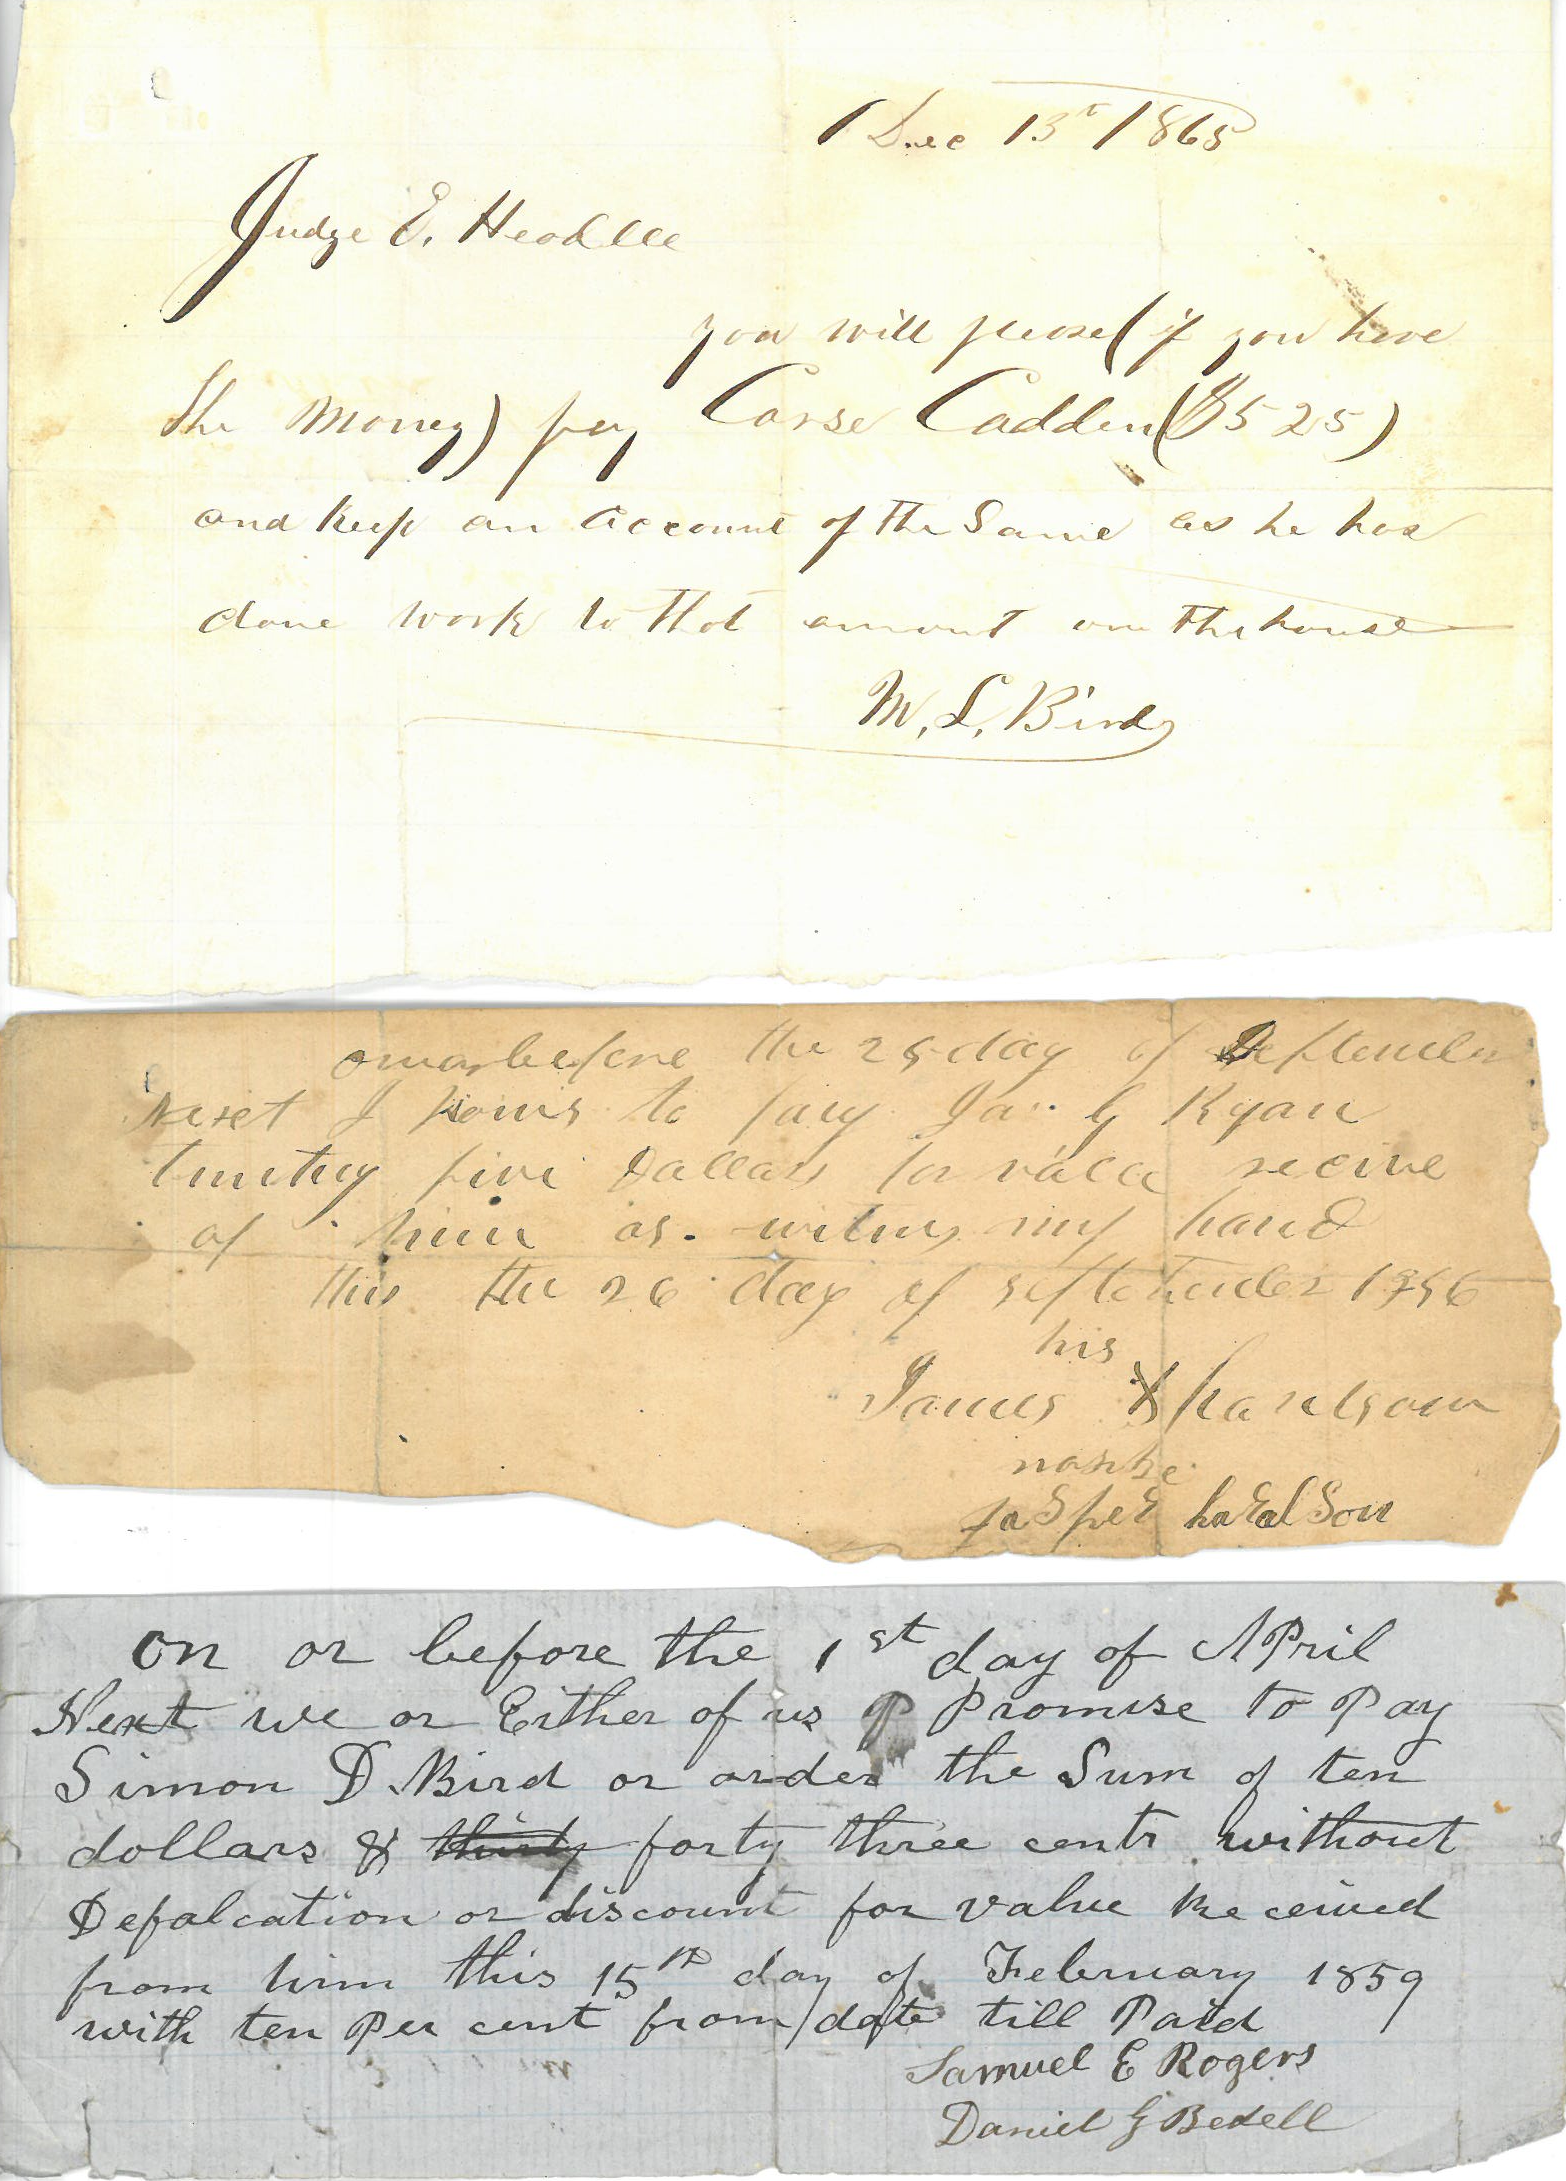 Dec 13th 1865
Judge E. Headlee
you will please (if you have
the money) pay Carse Cadden ($525)
and keep an account of the same as he has
done work to that amount on the house
M. L. Bird
before the 25 day of September
Next I to pay G Ryan
five Dallars for receive
of him as witnes my hand
this the 26 day of 1856
his
James X
Jasper haralson
on or before the 1st day of April
Next we or Either of us P Promise to Pay
Simon D. Bird or order the Sum of ten
dollars & thirty forty three cents without
Defalcation or discount for value Received
from him this 15th day of February 1859
with ten Per cent from date till Paid
Samuel E Rogers
Daniel G Bedell